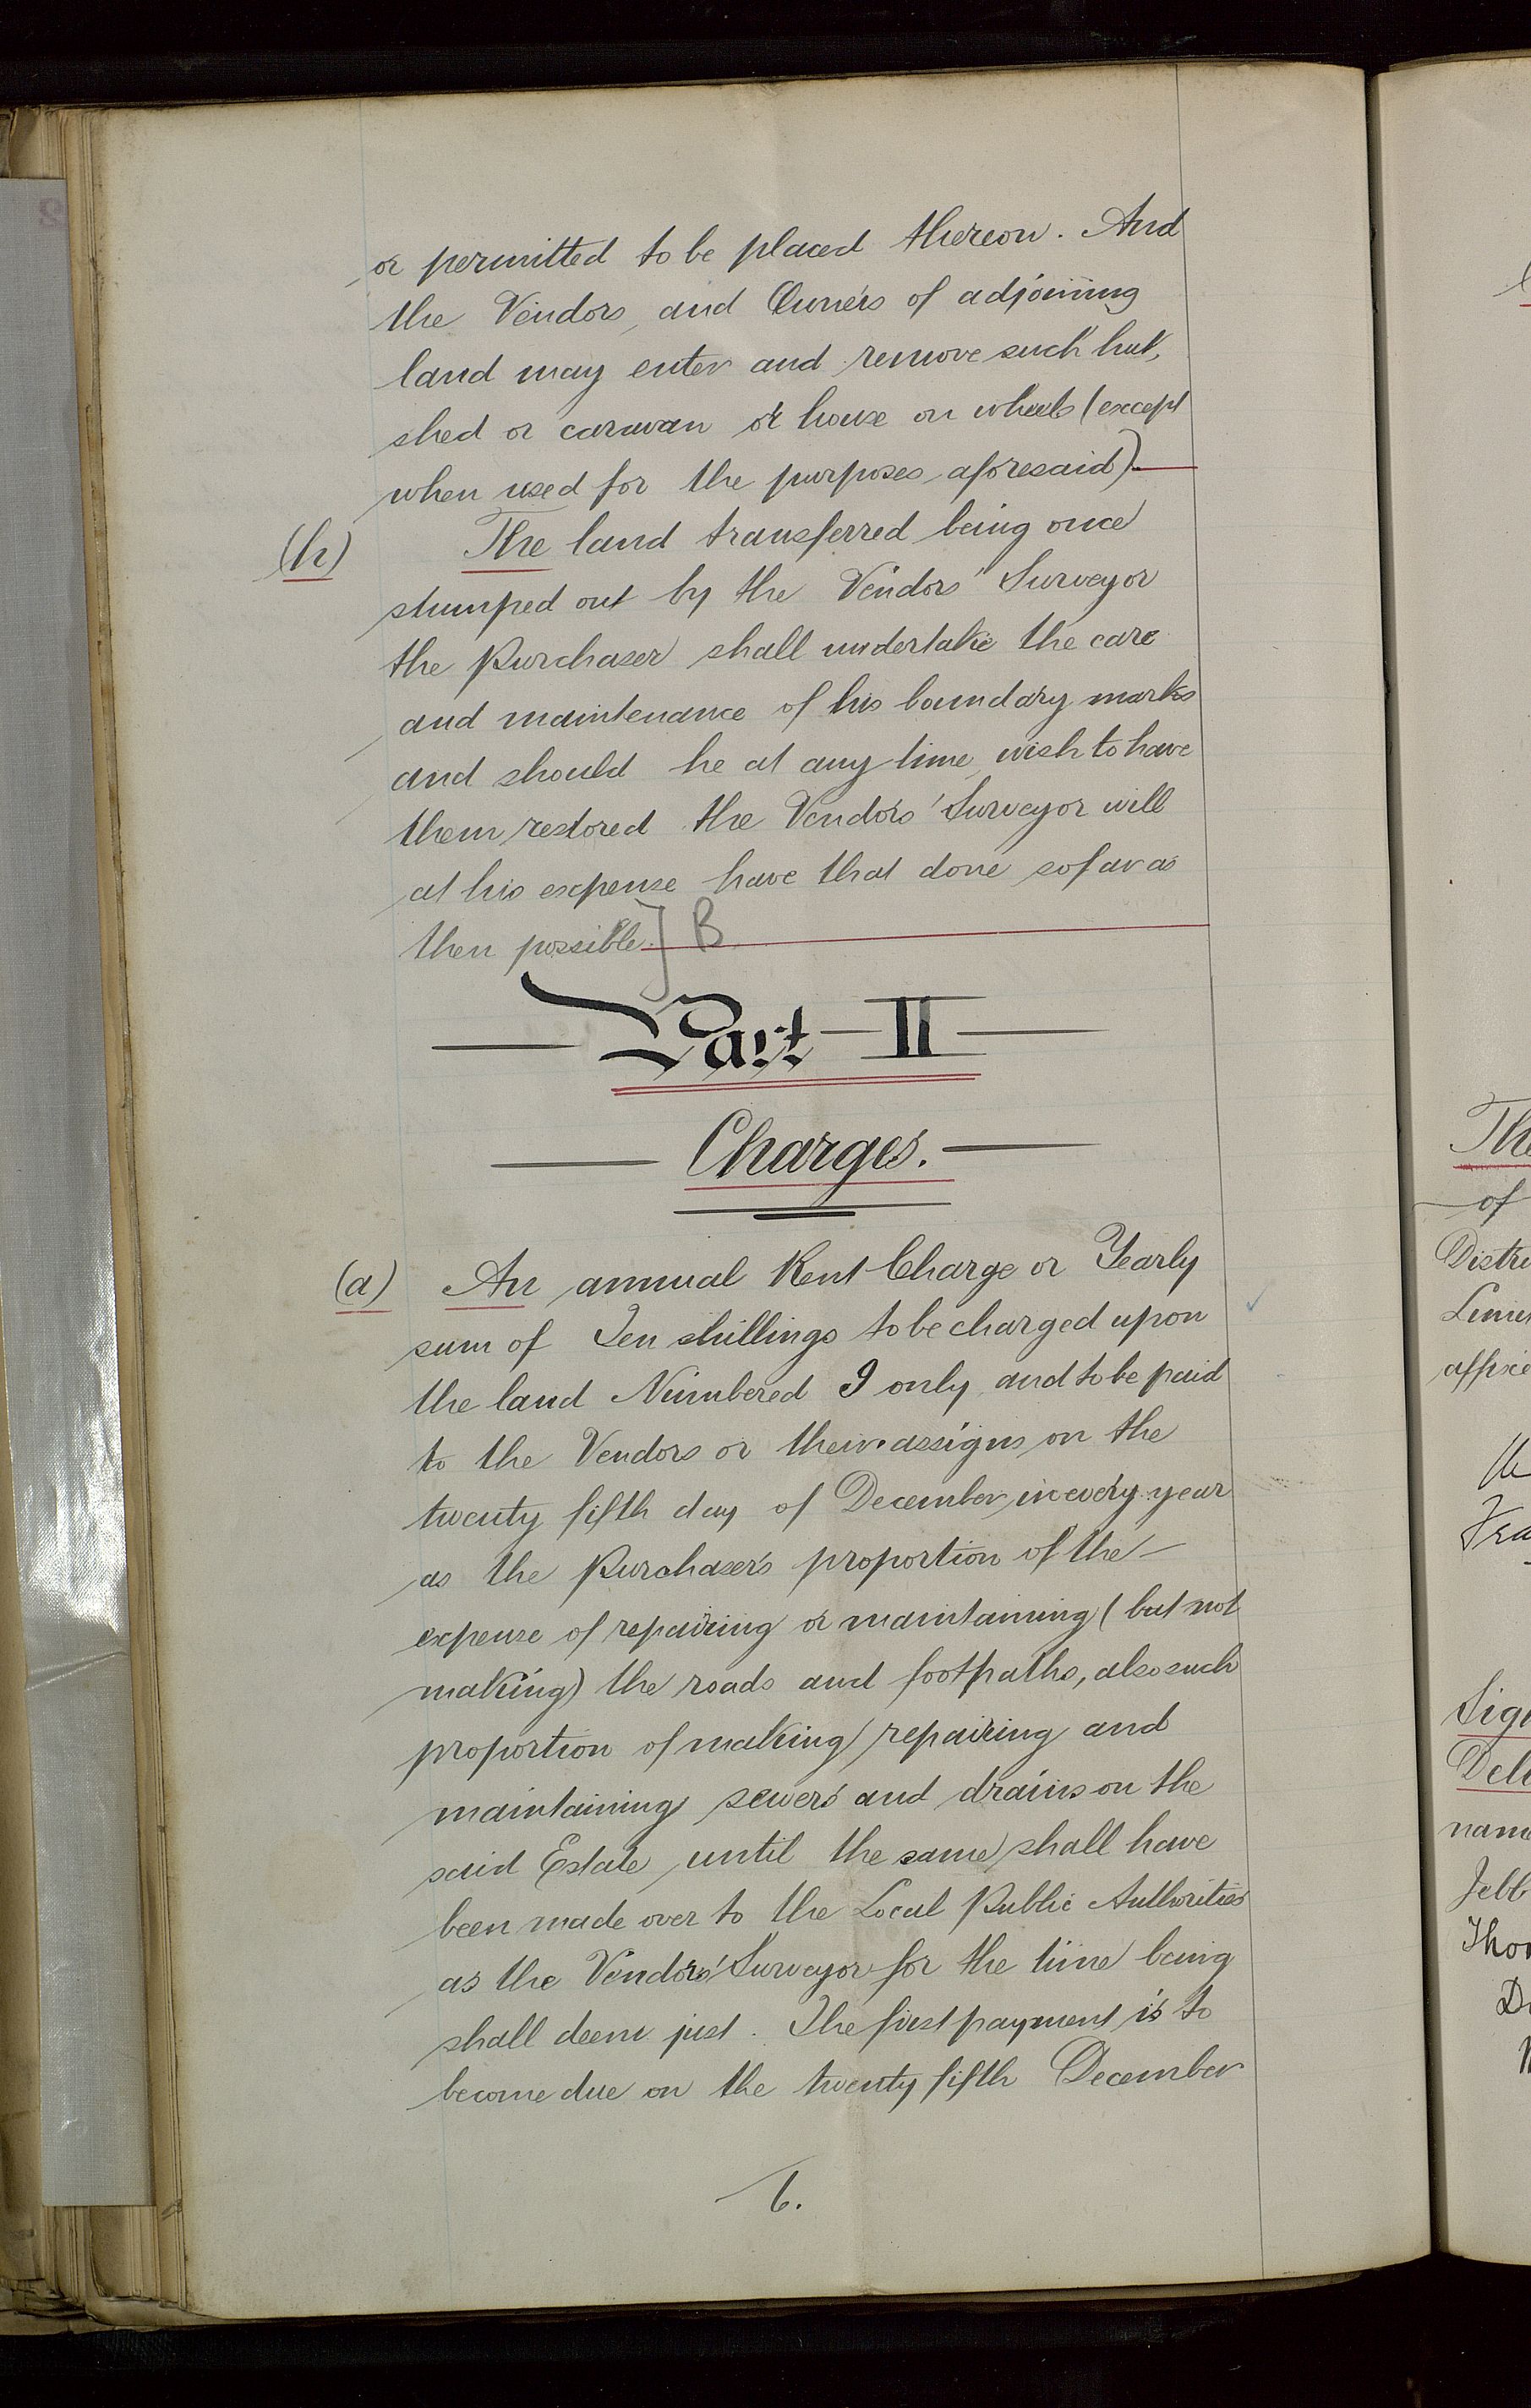 or permitted to be placed thereon. And
the Vendors, and Owners of adjoining
land may enter and remove such hut,
shed or caravan or house on wheels (except
when used for the purposes aforesaid).
(h) The land transferred being once
stumped out by the Vendors' Surveyor
the Purchaser shall undertake the care
and maintenance of his boundary marks
and should he at any time wish to have
them restored the Vendors' Surveyor will
at his expense have that done so far as
then possible.] B
Part II
Charges.
(a) An annual Rent Charge or Yearly
sum of Ten shillings to be charged upon
the land Numbered 9 only, and to be paid
to the Vendors or their assigns on the
twenty fifth day of December in every year
as the Purchaser's proportion of the
expense of repairing or maintaining (but not
making) the roads and footpaths, also such
proportion of making repairing and
maintaining sewers and drains on the
said Estate, until the same shall have
been made over to the Local Public Authorities
as the Vendors' Surveyor for the time being
shall deem just. The first payment is to
become due on the twenty fifth December
6.
The
of
Distri
affixe
Sign
Deli
name
Jebb
Thom